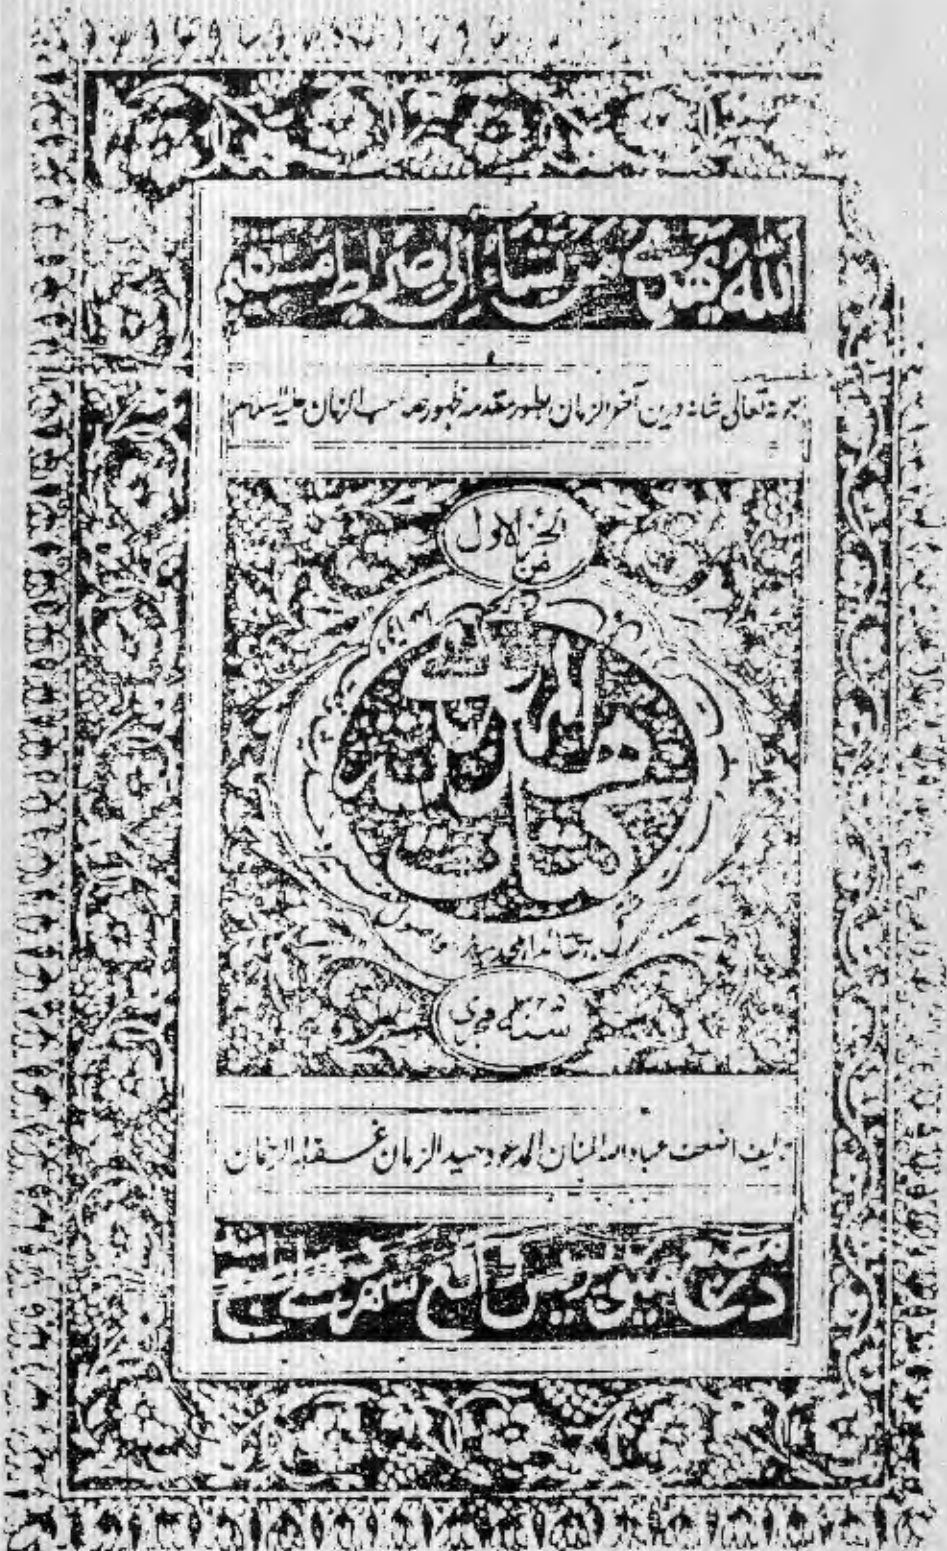 الله يهدي من يشاء إلى صراط مستقيم
تعالی شانه درین آخر الزمان بطور مقدمه ظهور صاحب الزمان علیه السلام
الجزء الاول
من
كتاب
هدية
المهدي
هجری
تالیف اضعف عباد الله المنان المدعو وحید الزمان غفر له الرحمان
در مطبع میور پریس واقع شهر دهلی طبع شد